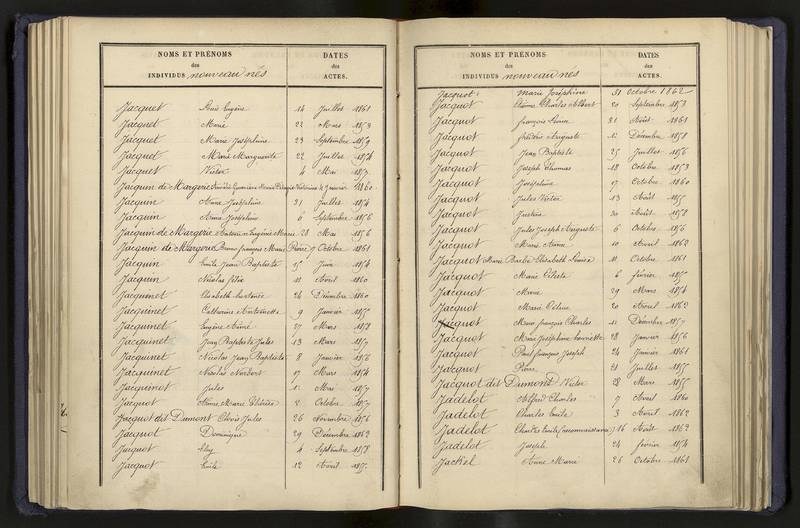 NOMS ET PRÉNOMS
des
INDIVIDUS nouveau nés
DATES
des
ACTES.
Jacquet Eugène 14 Juillet 1861
Jacquet Marie 22 Mars 1853
Jacquet Marie Joséphine 23 Septembre 1859
Jacquet Marie Marguerite 22 Juillet 1854
Jacquet Victor 4 Mai 1857
Jacquin de Margerie Marie Janvier 1860
Jacquin Anne Joséphine 31 Juillet 1854
Jacquin Anne Joséphine 6 Septembre 1856
Jacquin de Margerie Eugénie Marie 28 Mai 1856
Jacquin de Margerie Bruno françois Marie Pierre 7 Octobre 1861
Jacquin Emile Jean Baptiste 15 Juin 1854
Jacquin Nicolas félix 11 Avril 1860
Jacquinet Elisabeth 24 Décembre 1860
Jacquinet Catherine Antoinette 9 Janvier 1855
Jacquinet Eugène Aimé 27 Mars 1858
Jacquinet Jean Baptiste Jules 13 Mars 1857
Jacquinet Nicolas Jean Baptiste 8 Janvier 1856
Jacquinet Nicolas Norbert 17 Mars 1854
Jacquinot Jules Mai 1857
Jacquot Anne Marie 2 Octobre 1857
Jacquot dit Dumont Clovis Jules 26 Novembre 1856
Jacquot Dominique 29 Décembre 1862
Jacquot Eloy 4 Septembre 1858
Jacquot Emile 12 Avril
NOMS ET PRÉNOMS
des
INDIVIDUS nouveau nés
DATES
des
ACTES.
Jacquot Marie Joséphine 31 Octobre 1862
Jacquot Etienne Charles Albert 20 Septembre 1853
Jacquot françois 31 Août 1861
Jacquot frédéric Auguste 12 Décembre 1858
Jacquot Jean Baptiste 25 Juillet 1856
Jacquot Joseph Thomas 18 Octobre 1853
Jacquot Joséphine 17 Octobre 1860
Jacquot Jules Victor 13 Août 1855
Jacquot Justin 30 Août 1858
Jacquot Jules Joseph Auguste 6 Octobre 1856
Jacquot Marie Anne 10 Avril 1862
Jacquot Marie Barbe Elisabeth Louise 11 Octobre 1861
Jacquot Marie Céleste 6 février
Jacquot Marie 29 Mars 1854
Jacquot Marie Céline 20 Avril 1862
Jacquot françois Charles 11 Décembre 1857
Jacquot Marie Joséphine 28 Janvier 1856
Jacquot Paul françois Joseph 24 Janvier 1861
Jacquot Pierre 21 Juillet 1855
Jacquot dit Dumont Victor 28 Mars 1855
Jadelot Alfred Charles 7 Avril 1860
Jadelot Charles Emile 3 Avril 1862
Jadelot Charles Emile (reconnaissance) 16 Août 1862
Jadelot Joseph 24 février 1854
Jackel Anne Marie 26 Octobre 1861